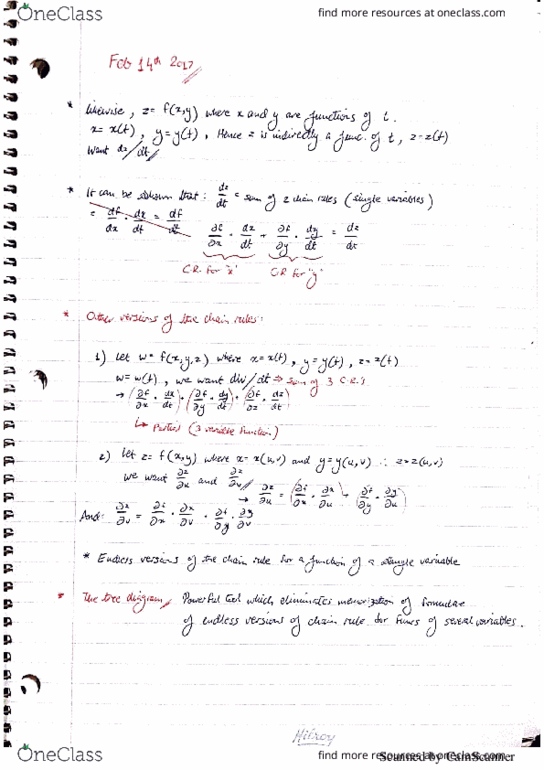 OneClass
find more resources at oneclass.com
Feb 14th 2017
* Likewise, z = f(x,y) where x and y are functions of t.
x = x(t), y = y(t), Hence z is indirectly a func. of t, z = z(t)
Want dz/dt
* It can be shown that: dz/dt = sum of 2 chain rules (single variables)
= df/dx · dx/dt = df/dt
∂f/∂x · dx/dt + ∂f/∂y · dy/dt = dz/dt
C.R. for "x" C.R. for "y"
* Other versions of the chain rules:
1) Let w = f(x,y,z) where x = x(t), y = y(t), z = z(t)
w = w(t), we want dw/dt ⇒ sum of 3 C.R.'s
→ (∂f/∂x · dx/dt) + (∂f/∂y · dy/dt) + (∂f/∂z · dz/dt)
↳ Partial (3 variable function)
2) Let z = f(x,y) where x = x(u,v) and y = y(u,v) ∴ z = z(u,v)
we want ∂z/∂u and ∂z/∂v
→ ∂z/∂u = (∂f/∂x · ∂x/∂u) + (∂f/∂y · ∂y/∂u)
And: ∂z/∂v = ∂f/∂x · ∂x/∂v + ∂f/∂y · ∂y/∂v
* Endless versions of the chain rule for a function of a single variable
* The tree diagram, Powerful tool which eliminates memorization of formulae
of endless versions of chain rule for funcs of several variables.
OneClass
find more resources at oneclass.com
Scanned by CamScanner